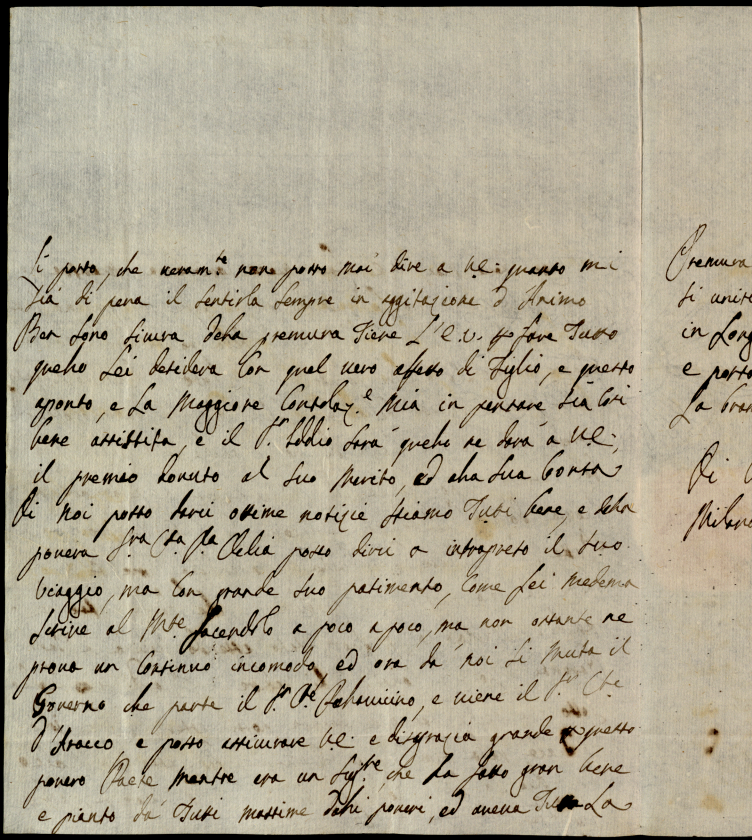 Li posso, che veram.te non posso mai dire a V.E. quanto mi
sia di pena il sentirla sempre in aggitazione d'Animo
Ben sono sicura della premura tiene L'E.V. per fare Tutto
quello Lei desidera con quel vero affetto di Figlio, e questo
aponto, e La Maggiore Consolaz.e Mia in pensare sia Così
bene assistita, e il S.r Iddio sarà quello ne darà a V.E.
il premio dovuto al suo Merito, ed alla sua Bontà
Di noi posso darci ottime notizie stiamo Tutti bene, e della
povera Sig.ra C.ssa D.a Clelia posso dirci a intrapreso il suo
viaggio, ma con grande suo patimento, Come Lei medema
scrive al M.se facendolo a poco a poco, ma non ostante ne
prova un Continuo incomodo, ed ora da noi si Muta il
Governo che parte il S.r C.te Pallavicino, e viene il S.r C.te
e posso assicurare V.E. e disgrazia grande per questo
povero Paese mentre era un Sig.re, che ha fatto gran bene
e pianto da Tutti massime dalli poveri, ed aveva Tutta La
Premura
si unit
in Long
e posso
La
Di
Milano